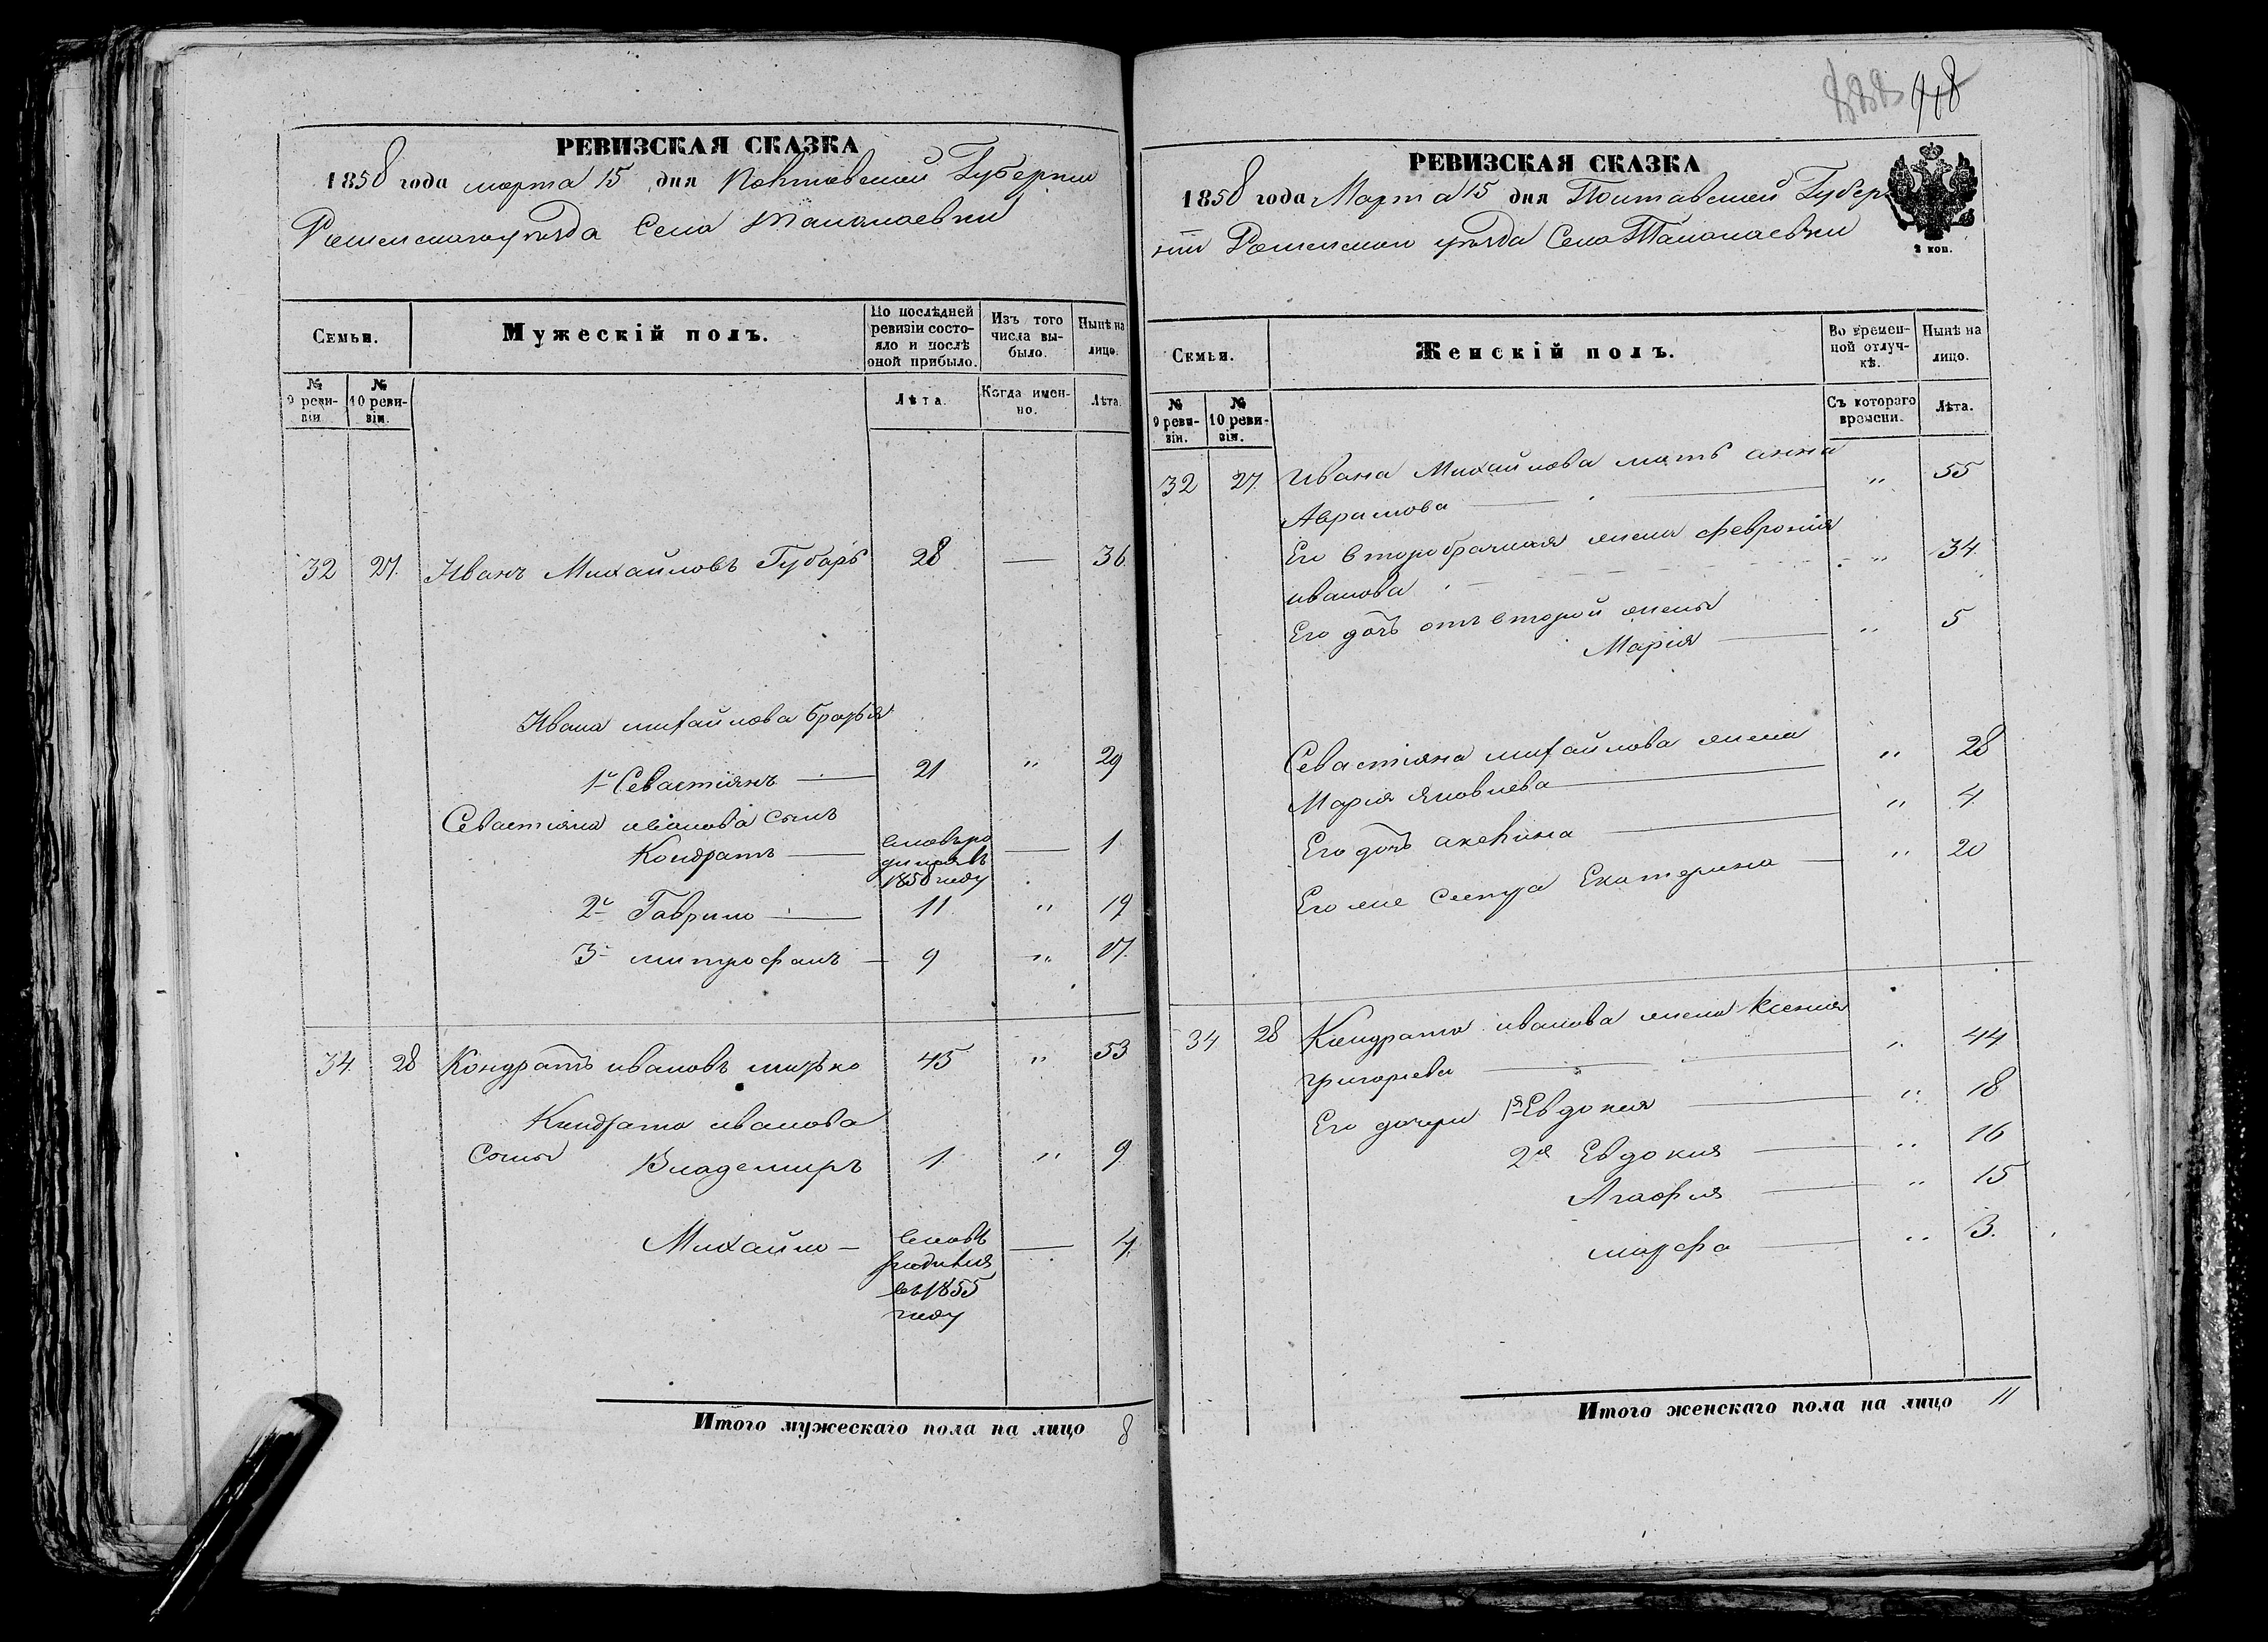 РЕВИЗСКАЯ СКАЗКА
1858 года марта 15 дня Полтавской Губернии
Роменскаго уѣзда Села Талалаевки
Семьи.
Мужескій полъ.
По послѣдней ревизіи состояло и послѣ оной прибыло.
Изъ того числа выбыло.
Нынѣ на лицо.
№ 9 ревизіи.
№ 10 ревизіи.
Лѣта.
Когда именно.
Лѣта.
32 27 Иванъ Михайловъ Губарь 28 — 36
Ивана михайлова братья
1й Севастіянъ — 21 " 29
Севастіяна иванова Сынъ
Кондратъ — вновь родился въ 1858 году — 1
2й Гаврило — 11 " 19
3й митрофанъ — 9 " 17
34 28 Кондратъ ивановъ 45 " 53
Кондрата иванова
Сыны Владемиръ 1 " 9
Михайло — вновь родился въ 1855 году — 4
Итого мужескаго пола на лицо 8
918
РЕВИЗСКАЯ СКАЗКА
1858 года Марта 15 дня Полтавской Губер
ніи Роменскаго уѣзда Села Талалаевки
2 коп.
Семьи.
Женскій полъ.
Во временной отлучкѣ.
Нынѣ на лицо.
№ 9 ревизіи.
№ 10 ревизіи.
Съ котораго времени.
Лѣта.
32 27 Ивана Михайлова мать анна " 55
Аврамова —
Его второбрачная жена февронія " 34
иванова
Его дочь отъ второй жены
Марія — " 5
Севастіяна михайлова жена " 28
Марія Яковлева —
Его дочь — " 4
Его же сестра Екатерина — " 20
34 28 Кондрата иванова жена Ксенія " 44
григорьева —
Его дочери 1я Евдокия — " 18
2я Евдокия — " 16
Агафия — " 15
марфа — " 3.
Итого женскаго пола на лицо 11